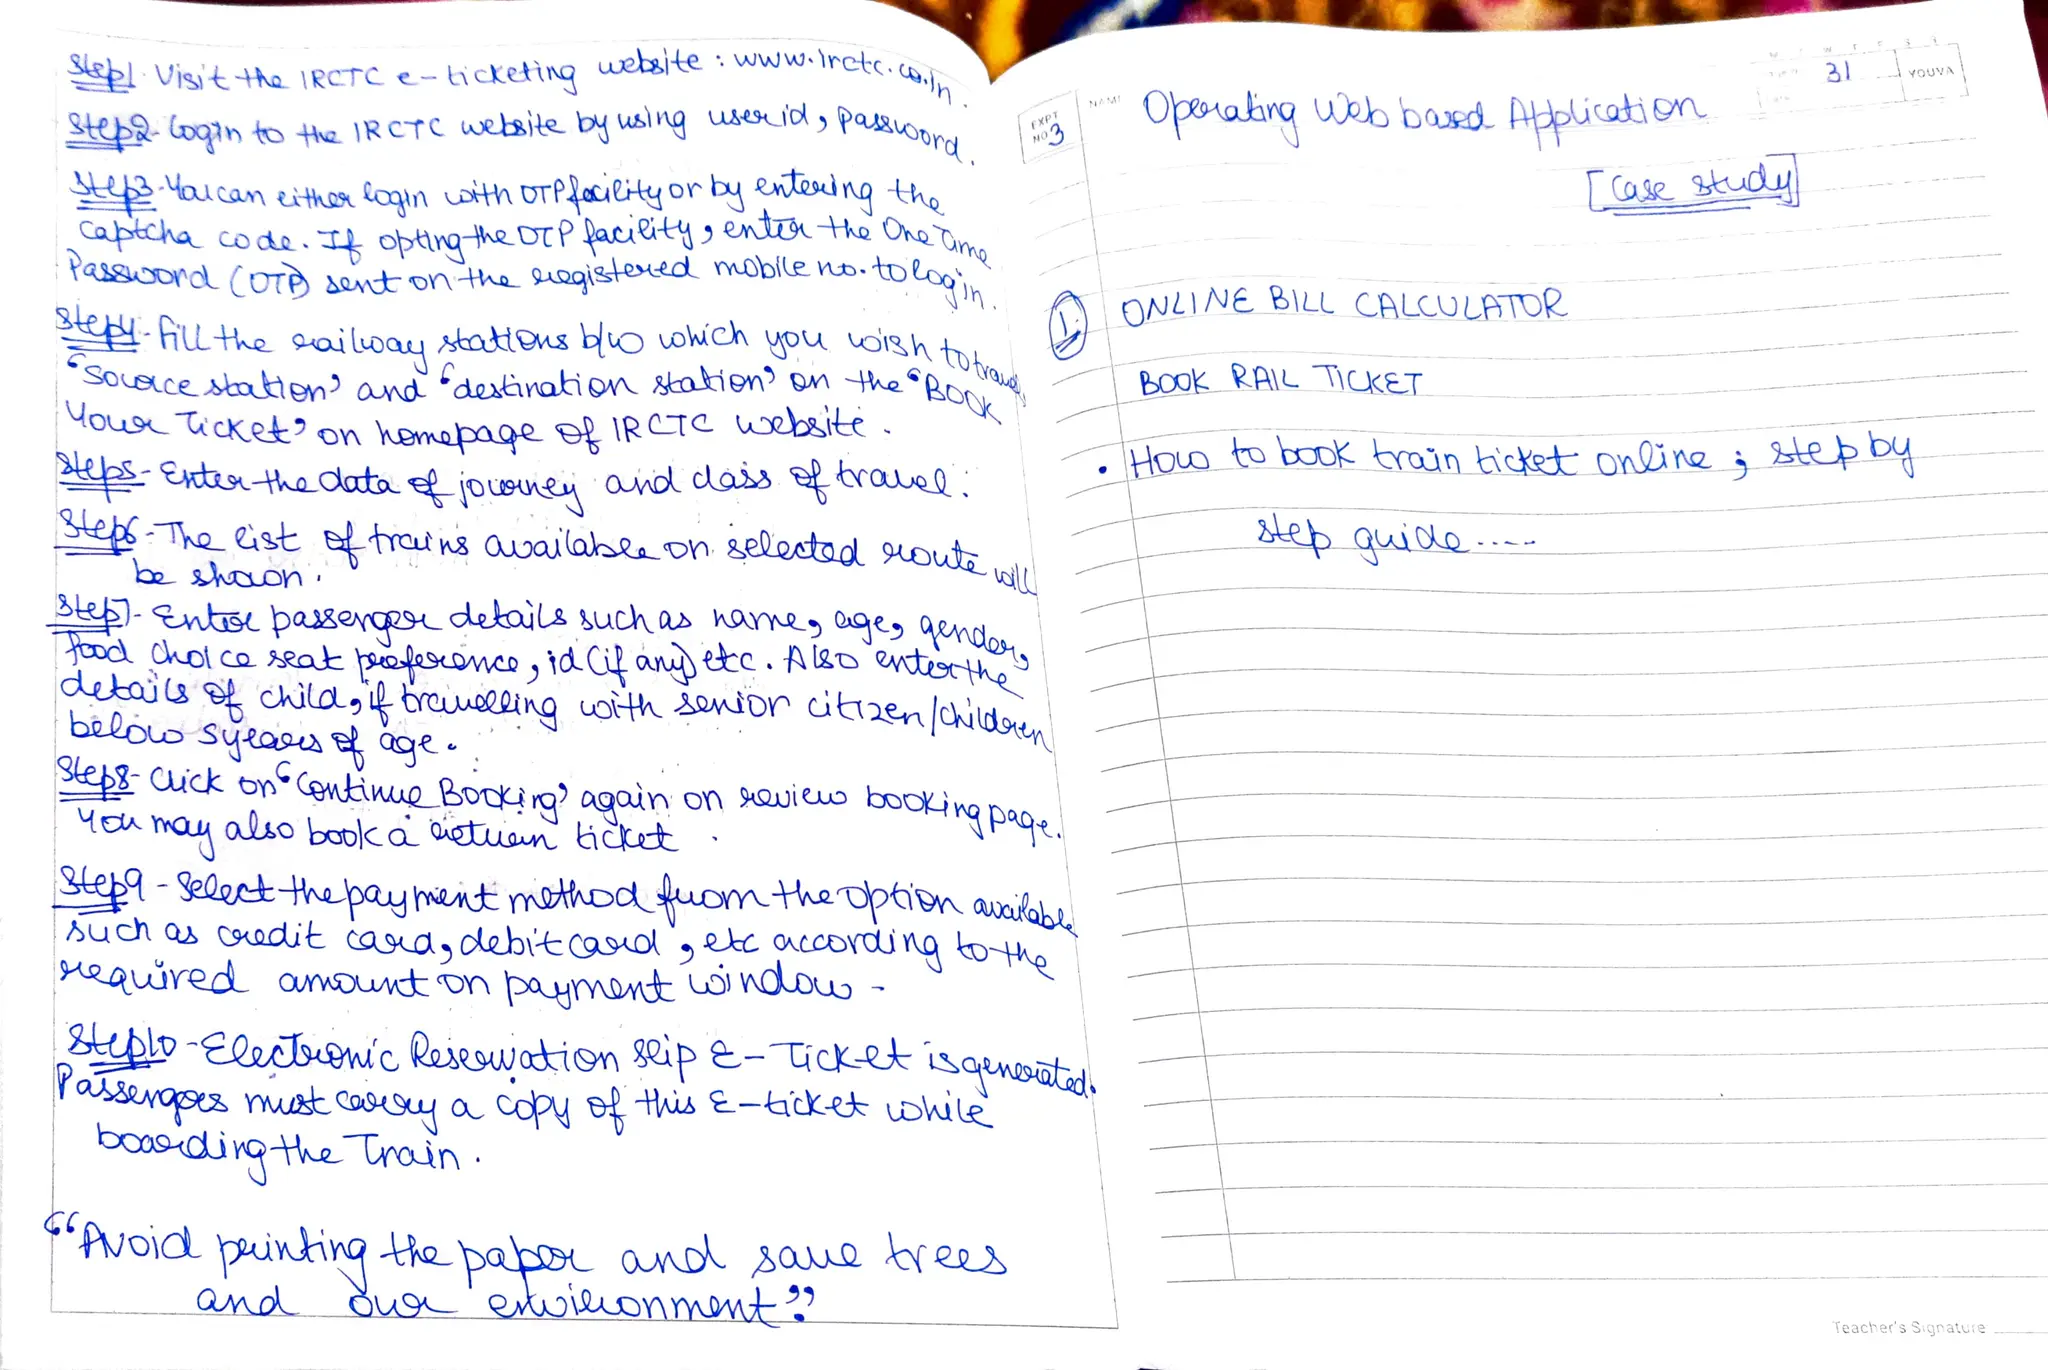 Step1. Visit the IRCTC e-ticketing website : www.irctc.co.in.
Step2- login to the IRCTC website by using user id, password.
Step3- You can either login with OTP facility or by entering the
captcha code. If opting the OTP facility, enter the One Time
Password (OTP) sent on the registered mobile no. to login.
Step4- fill the railway stations b/w which you wish to travel,
'Source station' and 'destination station' on the 'BOOK
Your Ticket' on homepage of IRCTC website.
Step5- Enter the data of journey and class of travel.
Step6- The list of trains available on selected route will
be shown.
Step7- Enter passenger details such as name, age, gender,
food choice seat preference, id (if any) etc. Also enter the
details of child, if travelling with senior citizen/children
below 5 years of age.
Step8- Click on 'Continue Booking' again on review booking page.
You may also book a return ticket
Step9 - Select the payment method from the option available
such as credit card, debit card, etc according to the
required amount on payment window -
Step10 - Electronic Reservation slip E-Ticket is generated.
Passengers must carry a copy of this E-ticket while
boarding the Train.
"Avoid printing the paper and save trees
and our environment".
M T W T F S S
31
YOUVA
EXPT
NO 3
NAME
Operating Web based Application
[Case study]
1. ONLINE BILL CALCULATOR
BOOK RAIL TICKET
• How to book train ticket online ; step by
step guide.....
Teacher's Signature